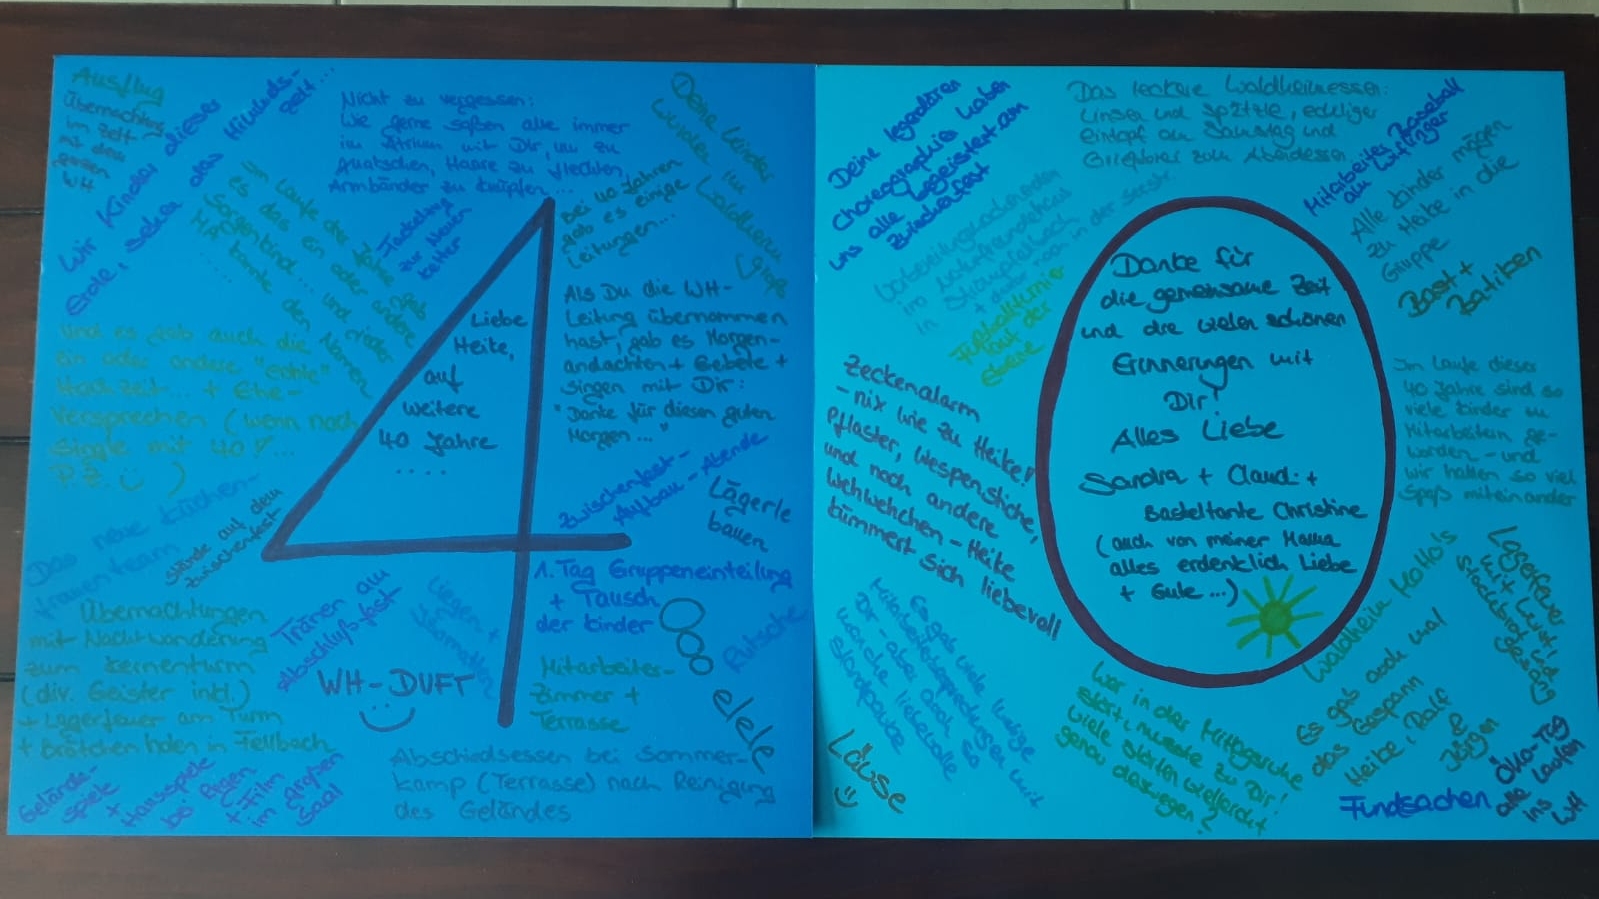 Ausflug
Übernachtung
im Zelt
mit dem
ganzen
WH
Wir Kinder dieser
Erde, sehen das Himmels-
zelt...
Nicht zu vergessen:
Wie gerne saßen alle immer
im Atrium mit Dir, um zu
Quatschen, Haare zu flechten,
Armbänder zu knüpfen...
Deine Kinder
wurden im
Waldheim
groß
Im Laufe der Jahre gab
es das ein oder andere
Sorgenkind... und
MA kannte den Namen
......
zur Neuen
Bei 40 Jahren
gab es einige
Leitungen...
Und es gab auch die
ein oder andere "echte"
Hochzeit... + Ehe-
Versprechen (wenn noch
single mit 40!...
P.Z. )
4
Liebe
Heike,
auf
weitere
40 Jahre
....
Als Du die WH-
Leitung übernommen
hast, gab es Morgen-
andachten + Gebete +
singen mit Dir:
"Danke für diesen guten
Morgen..."
Zwischenfest-
Aufbau-Abende
Lägerle
bauen
Das neue Küchen-
frauenteam
Stände auf dem
Zwischenfest
1. Tag Gruppeneinteilung
+ Tausch
der Kinder
Übernachtungen
mit Nachtwanderung
zum Kernenturm
(div. Geister inkl.)
+ Lagerfeuer am Turm
+ Brötchen holen in Fellbach
Tränen am
Abschlußfest
Liegen +
WH-DUFT
Mitarbeiter-
Zimmer +
Terrasse
Rutsche
elele
Gelände-
spiele
+
Hausspiele
bei Regen
+ Film
im großen
Saal
Abschiedsessen bei Sommer-
kamp (Terrasse) nach Reinigung
des Geländes
Deine legendären
Choreographien haben
uns alle begeistert am
Zwischenfest
Das leckere Waldheimessen:
Linsen und Spätzle, eckliger
Eintopf am Samstag und
zum Abendessen
Mitarbeiter Baseball
am
Alle Kinder mögen
zu Heike in die
Gruppe
Bast +
Batiken
im Naturfreundehaus
in
Fußballturnier
auf der
Ebene
0
Danke für
die gemeinsame Zeit
und die vielen schönen
Erinnerungen mit
Dir!
Alles Liebe
Sandra + Claudi +
Basteltante Christine
(auch von meiner Mama
alles erdenklich Liebe
+ Gute...)
Zeckenalarm
- nix wie zu Heike!
Pflaster, Wespenstiche,
und noch andere
Wehwehchen - Heike
kümmert sich liebevoll
Im Laufe dieser
40 Jahre sind so
viele Kinder zu
Mitarbeitern ge-
worden - und
wir hatten so viel
Spaß miteinander
Es gab viele lustige
Mitarbeiterbesprechungen mit
Dir - aber auch so
manche liebevolle
Standpauke
Läuse
Wer in der Mittagsruhe
stört, musste zu Dir!
Viele störten vielleicht
genau deswegen?
Waldheim
Es gab auch mal
das Gespann
Heike, Ralf
&
Jürgen
Lagerfeuer
mit Wurst,
Stockbrot und
Gesang
Fundsachen
Öko-Tag
alle laufen
ins
WH